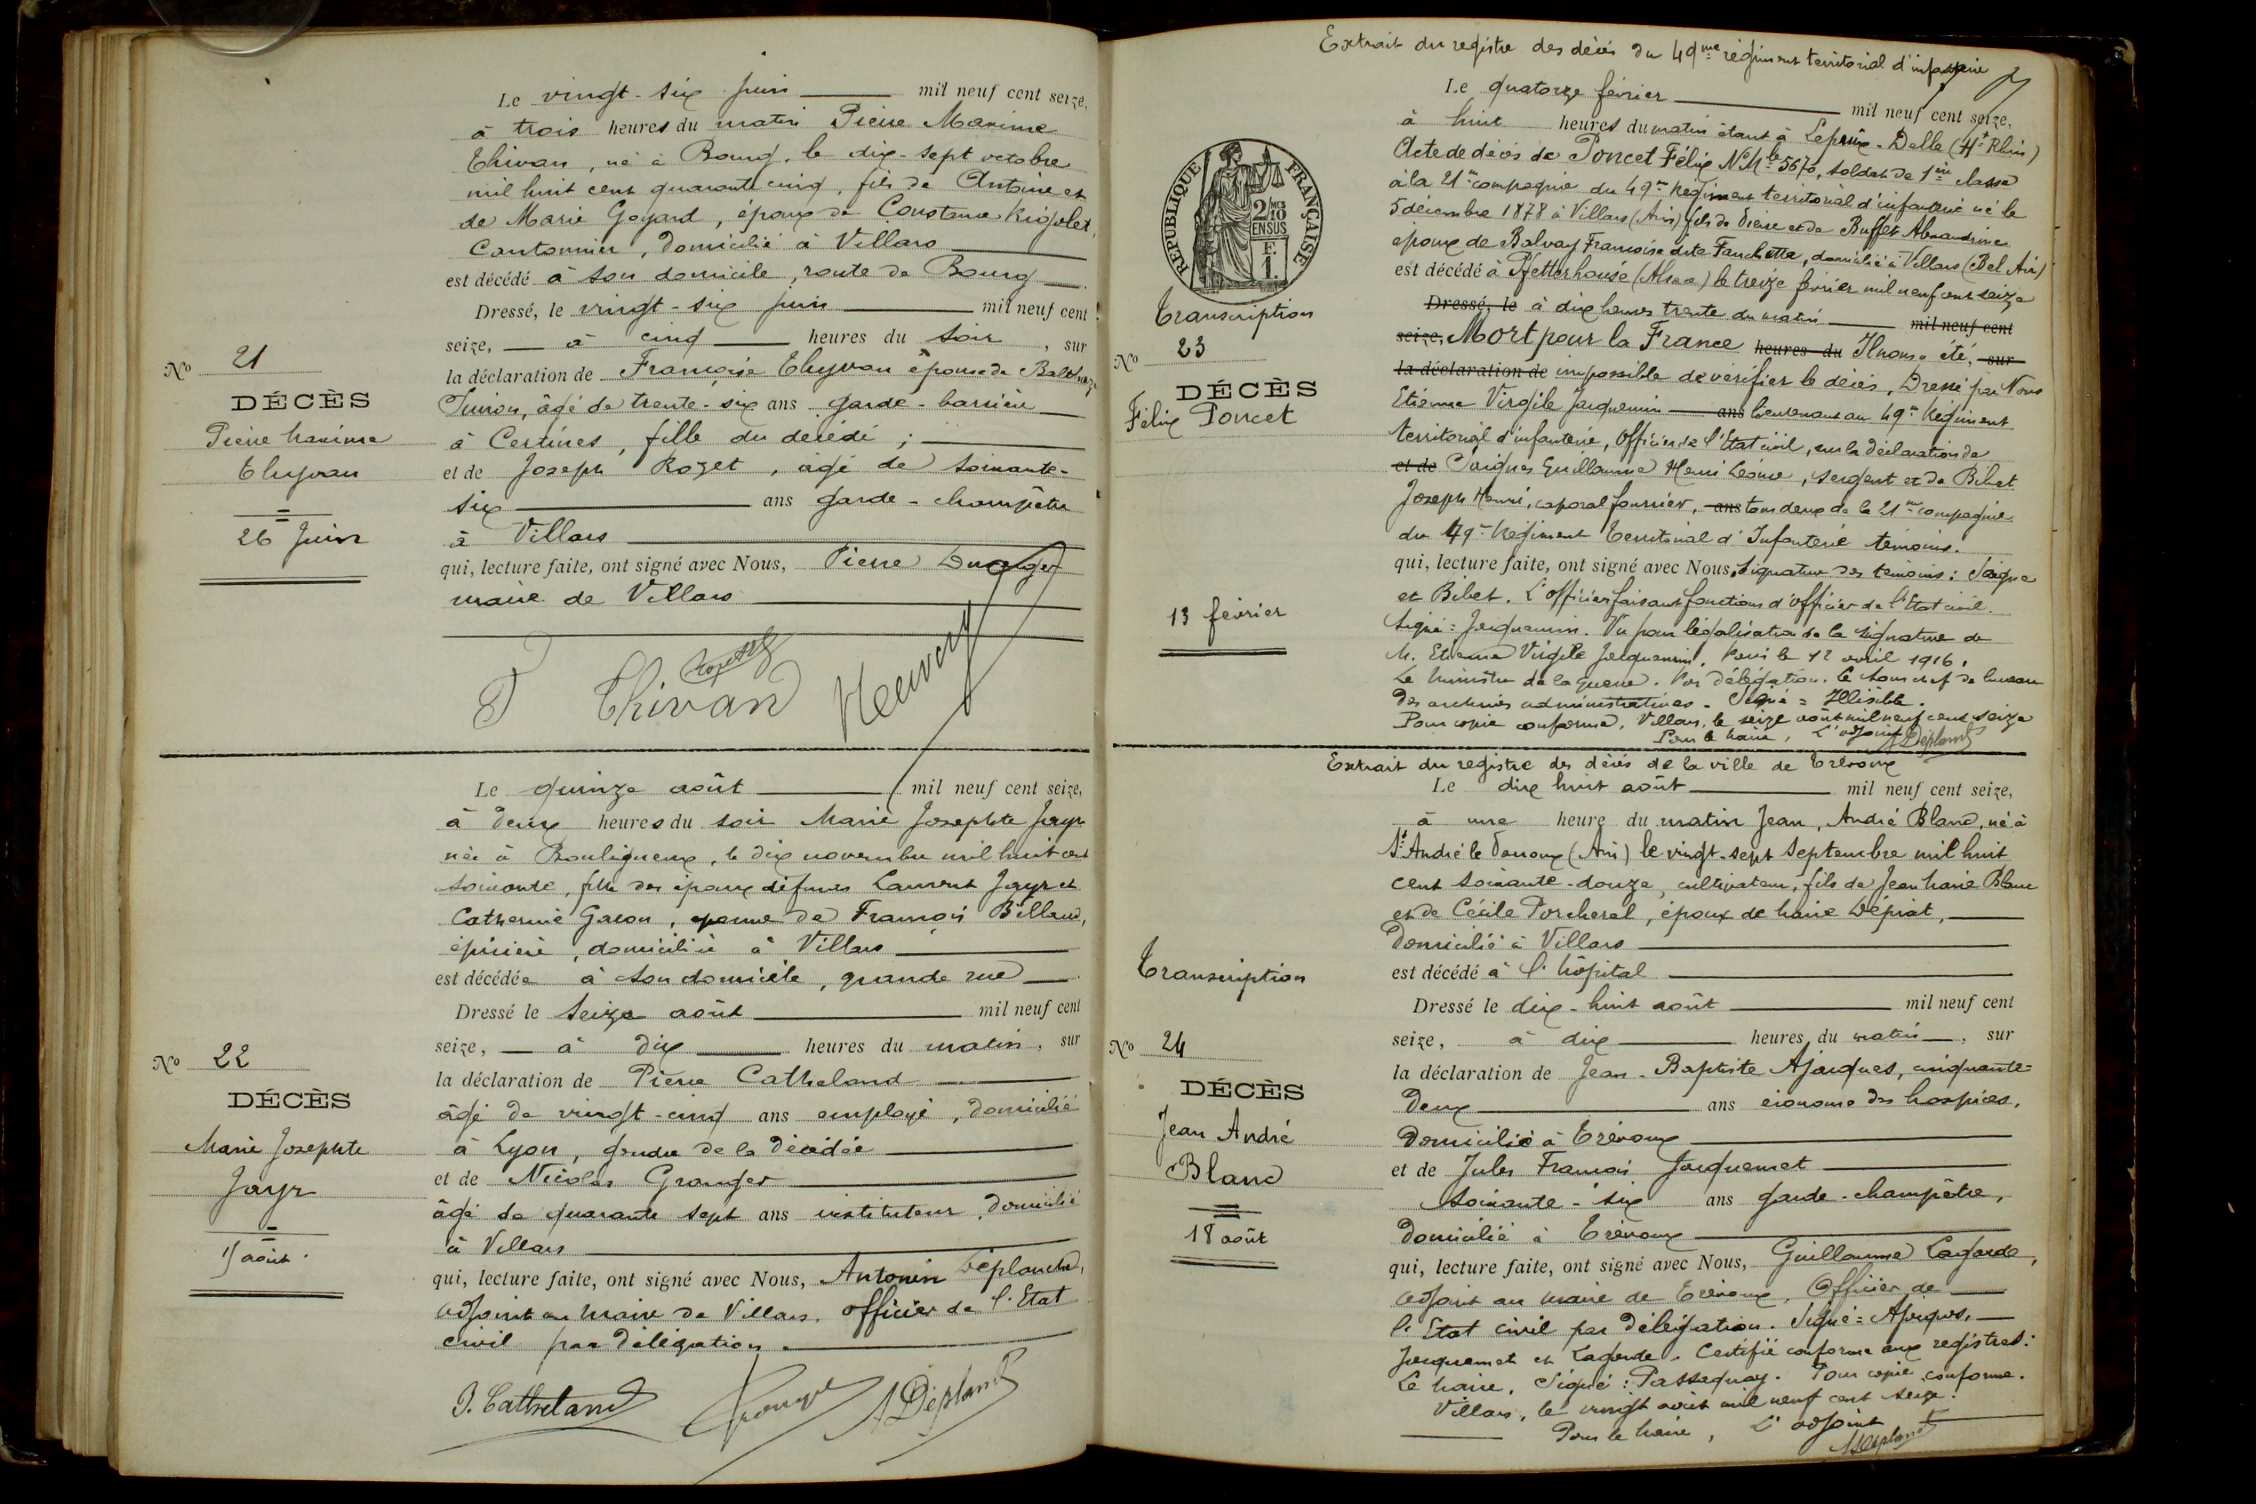 Le vingt-six juin mil neuf cent seize,
à trois heures du matin Pierre Maxime
Thivan, né à Bourg, le dix-sept octobre
mil huit cent quarante cinq, fils de Antoine et
de Marie Goyard, époux de Constance
Cantonnier, domicilié à Villars
est décédé à son domicile, route de Bourg
Dressé, le vingt-six juin mil neuf cent
seize, à cinq heures du soir, sur
la déclaration de Françoise Thyvan épouse de
âgé de trente-six ans garde-barrière
à Certines, fille du décédé ;
et de Joseph Rozet, âgé de soixante-
six ans garde-champêtre
à Villars
qui, lecture faite, ont signé avec Nous, Pierre
maire de Villars
Thivan
No 21
DÉCÈS
Pierre Maxime
Thyvan
26 Juin
Le quinze août mil neuf cent seize,
à deux heures du soir Marie Josephte Jayr
née à Bouligneux, le dix novembre mil huit cent
soixante, fille des époux défunts Laurent Jayr et
Catherine Gacon, épouse de François Billaud,
épicière, domiciliée à Villars
est décédée à son domicile, grande rue
Dressé le seize août mil neuf cent
seize, à dix heures du matin, sur
la déclaration de Pierre Catheland
âgé de vingt-cinq ans employé, domicilié
à Lyon, gendre de la décédée
et de Nicolas Granger
âgé de quarante sept ans instituteur, domicilié
à Villars
qui, lecture faite, ont signé avec Nous, Antonin Déplanche,
adjoint au maire de Villars, officier de l'Etat
civil par délégation.
P. Catheland
No 22
DÉCÈS
Marie Josephte
Jayr
15 août
Extrait du registre des décès du 49me régiment territorial d'infanterie
Le quatorze février mil neuf cent seize,
à huit heures du matin étant à Lepuix-Delle (Ht Rhin)
Acte de décès de Poncet Félix No Mle 5670, soldat de 1ère classe
à la 21me compagnie du 49me Régiment territorial d'infanterie né le
5 décembre 1878 à Villars (Ain) fils de Pierre et de Buffet Alexandrine
époux de Balvay Françoise dite Fanchette, domicilié à Villars (Bel Air)
est décédé à Pfetterhouse (Alsace) le treize février mil neuf cent seize
Dressé, le à dix heures trente du matin mil neuf cent
seize, Mort pour la France heures du Il nous a été, sur
la déclaration de impossible de vérifier le décès, Dressé par Nous
Etienne Virgile Jacquemin ans lieutenant au 49me Régiment
territorial d'infanterie, officier de l'Etat civil, sur la déclaration de
et de Guillaume Henri Léonce, sergent et de Bibet
Joseph Henri, caporal fourrier, ans tous deux de la 21me compagnie
du 49me Régiment Territorial d'Infanterie témoins.
qui, lecture faite, ont signé avec Nous, signature des témoins :
et Bibet. L'officier faisant fonctions d'officier de l'Etat civil.
Signé : Jacquemin. Vu pour légalisation de la signature de
M. Etienne Virgile Jacquemin. Paris le 12 avril 1916.
Le Ministre de la guerre. Par délégation. Le sous chef de bureau
des archives administratives. Signé = Illisible.
Pour copie conforme, Villars, le seize août mil neuf cent seize
Pour le maire, L'adjoint
RÉPUBLIQUE FRANÇAISE
2/10 EN SUS
F. 1.
Transcription
No 23
DÉCÈS
Félix Poncet
13 février
Extrait du registre des décès de la ville de Trévoux
Le dix huit août mil neuf cent seize,
à une heure du matin Jean, André Blanc, né à
St André le Panoux (Ain) le vingt-sept septembre mil huit
cent soixante-douze, cultivateur, fils de Jean Marie Blanc
et de Cécile Porcherel, époux de Marie Dépriat,
domicilié à Villars
est décédé à l'hôpital
Dressé le dix-huit août mil neuf cent
seize, à dix heures du matin, sur
la déclaration de Jean-Baptiste Ajacques, cinquante-
deux ans économe des hospices,
domicilié à Trévoux
et de Jules François Jacquemet
soixante-six ans garde-champêtre,
domicilié à Trévoux
qui, lecture faite, ont signé avec Nous, Guillaume Lagarde,
adjoint au maire de Trévoux, Officier de
l'Etat civil par délégation. Signé = Ajacques,
Jacquemet et Lagarde. Certifié conforme aux registres :
Le maire, Signé : Passequay. Pour copie conforme.
Villars, le vingt août mil neuf cent seize.
Pour le maire, L'adjoint
Transcription
No 24
DÉCÈS
Jean André
Blanc
18 août